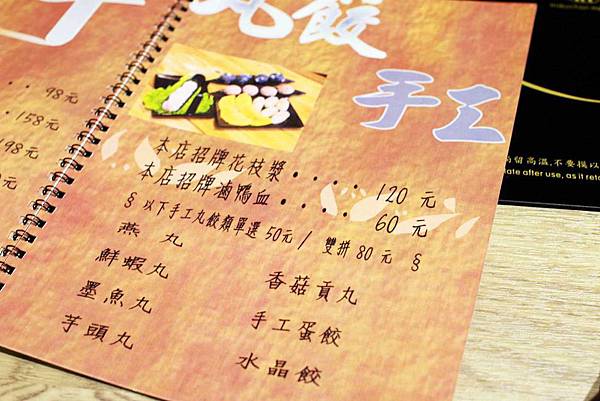 手工
丸餃
98元
158元
198元
本店招牌花枝漿・・・・・・120 元
本店招牌滷鴨血・・・・・60 元
§ 以下手工丸餃類單選 50元 / 雙拼 80 元 §
燕 丸
鮮蝦丸
墨魚丸
芋頭丸
香菇貢丸
手工蛋餃
水晶餃
留高温,不要摸以
ate after use, as it reta